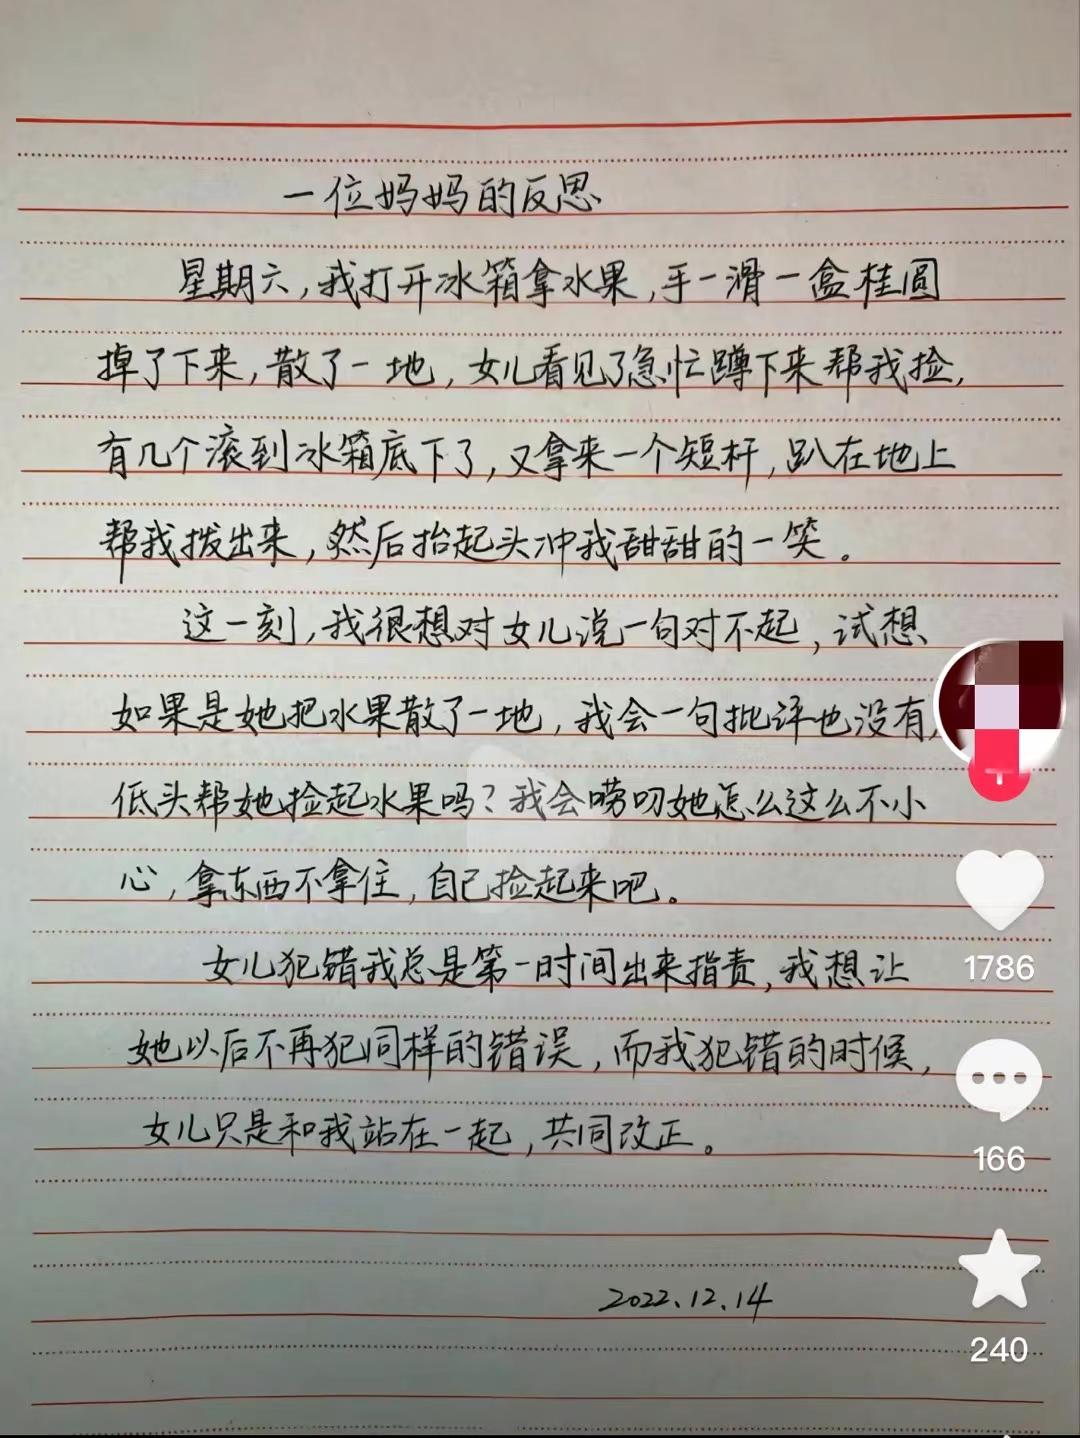 一位妈妈的反思
星期六，我打开冰箱拿水果，手一滑一盒桂圆
掉了下来，散了一地，女儿看见了急忙蹲下来帮我捡，
有几个滚到冰箱底下了，又拿来一个短杆，趴在地上
帮我拨出来，然后抬起头冲我甜甜的一笑。
这一刻，我很想对女儿说一句对不起，试想
如果是她把水果散了一地，我会一句批评也没有，
低头帮她捡起水果吗？我会唠叨她怎么这么不小
心，拿东西不拿住，自己捡起来吧。
女儿犯错我总是第一时间出来指责，我想让
她以后不再犯同样的错误，而我犯错的时候，
女儿只是和我站在一起，共同改正。
2022.12.14
1786
166
240